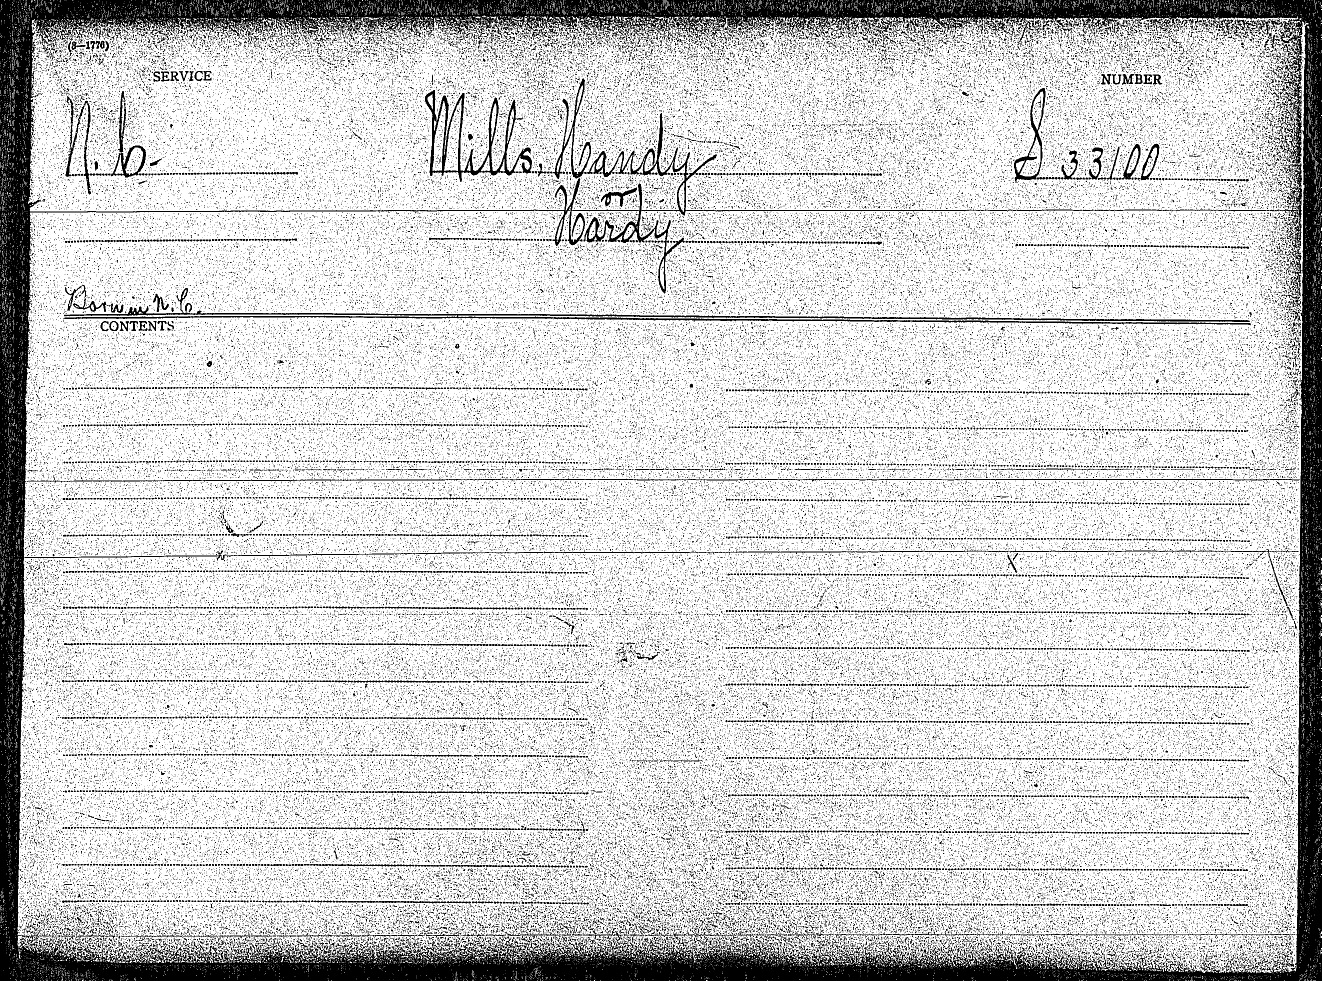 (3—1776)
SERVICE NUMBER
N. C. Mills, Handy S 33100
or
Hardy
Born in N. C.
CONTENTS